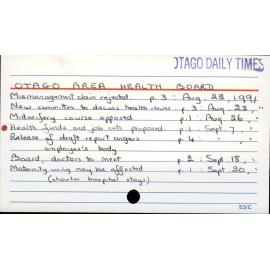 OTAGO DAILY TIMES
OTAGO AREA HEALTH BOARD
Mismanagement claim rejected. p.3 : Aug. 22, 1991
New committee to discuss health issues p.3 : Aug. 23, "
Midwifery course opposed p.1 : Aug. 26, "
Health funds and job cuts proposed p.1 : Sept. 7, "
Release of draft report angers p.4 : " "
employee's body
Board, doctors to meet p.2 : Sept. 18, "
Maternity wing may be affected p.1 : Sept. 20, "
(shorter hospital stays)
53/C